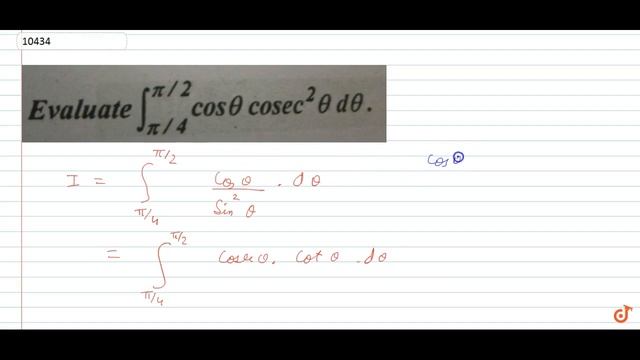 10434
Evaluate ∫_{π/4}^{π/2} cosθ cosec²θ dθ.
I = ∫_{π/4}^{π/2} Cosθ / Sin²θ . dθ
cosθ
= ∫_{π/4}^{π/2} Cosecθ . Cotθ . dθ